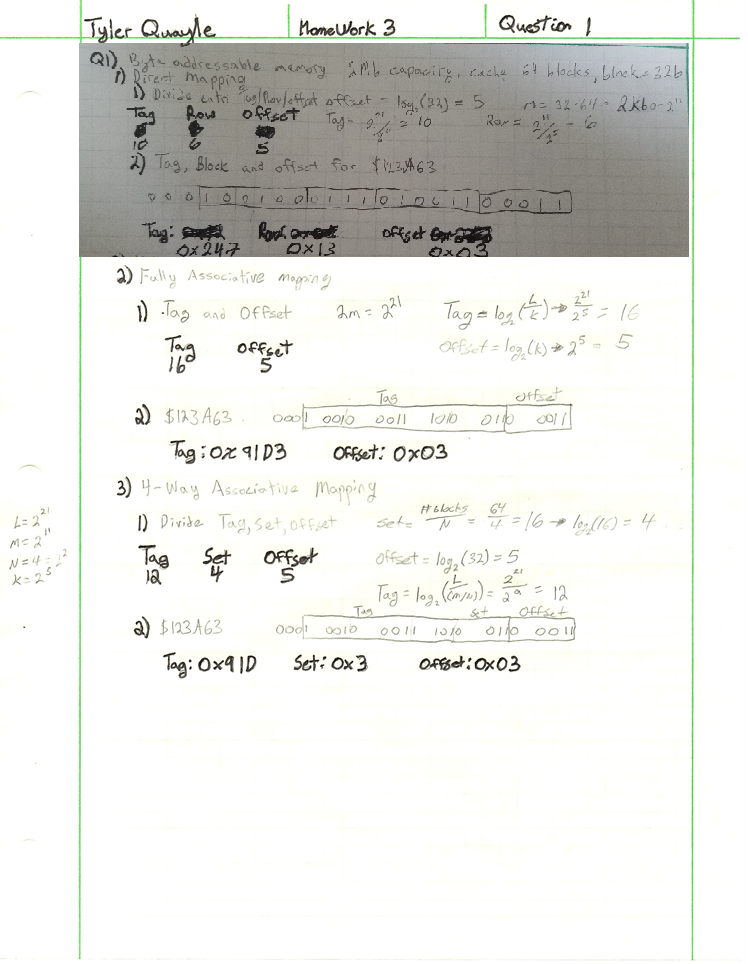 Tyler Quayle HomeWork 3 Question 1
Q1) Byte addressable memory 2Mb capacity, cache 64 blocks, block = 32b
1) Direct Mapping
1) Divide into Tag/Row/offset offset - log₂(32) = 5 m = 32·64 = 2kb = 2¹¹
Tag Row offset Tag = = 10 Row = 2¹¹/2⁵ = 6
10 6 5
2) Tag, Block and offset for $123A63
0 0 0 1 0 0 1 0 0 0 1 1 1 0 1 0 0 1 1 0 0 0 1 1
Tag: Row: offset
0x247 0x13 0x03
2) Fully Associative mapping
1) Tag and Offset 2m = 2²¹ Tag = log₂(L/k) → 2²¹/2⁵ = 16
Tag offset Offset = log₂(k) → 2⁵ = 5
16 5
Tag offset
2) $123A63 0001 0010 0011 1010 0110 0011
Tag: 0x91D3 Offset: 0x03
3) 4-Way Associative Mapping
1) Divide Tag, Set, offset set = # blocks/N = 64/4 = 16 → log₂(16) = 4
L = 2²¹
m = 2¹¹
N = 4 = 2²
K = 2⁵
Tag Set Offset Offset = log₂(32) = 5
12 4 5
Tag = log₂(L/(m/n)) = 2²¹/2⁹ = 12
Tag set Offset
2) $123A63 0001 0010 0011 1010 0110 0011
Tag: 0x91D Set: 0x3 Offset: 0x03